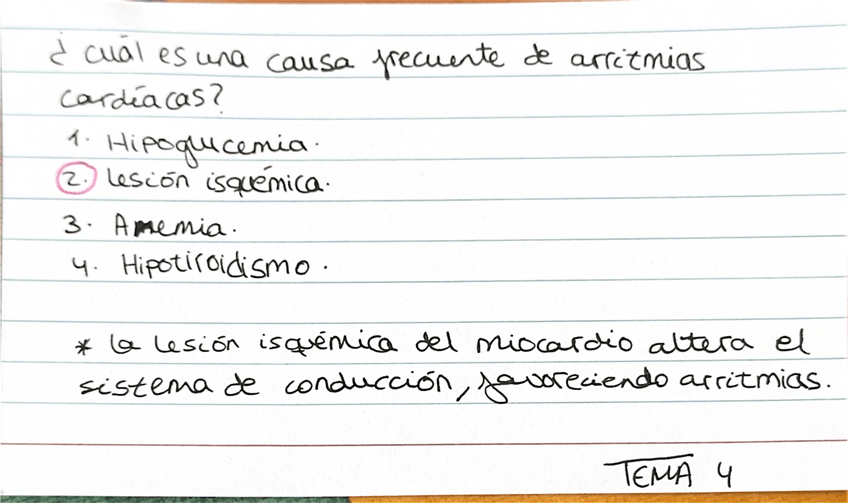 ¿ cuál es una causa frecuente de arritmias
cardíacas?
1. Hipoglucemia.
2. Lesión isquémica.
3. Anemia.
4. Hipotiroidismo.
* La lesión isquémica del miocardio altera el
sistema de conducción, favoreciendo arritmias.
TEMA 4